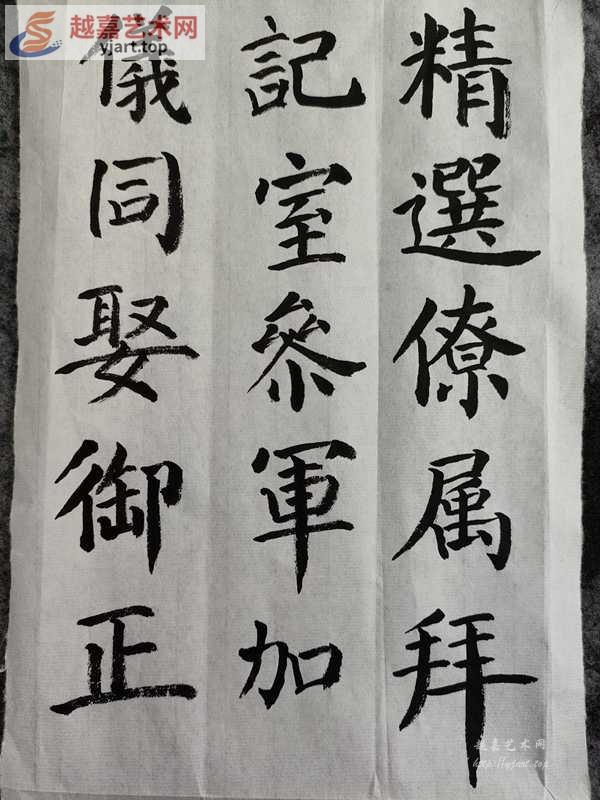 越嘉艺术网
yjart.top
精選僚属拜
記室參軍加
儀同娶御正
越嘉艺术网
http://yjart.top